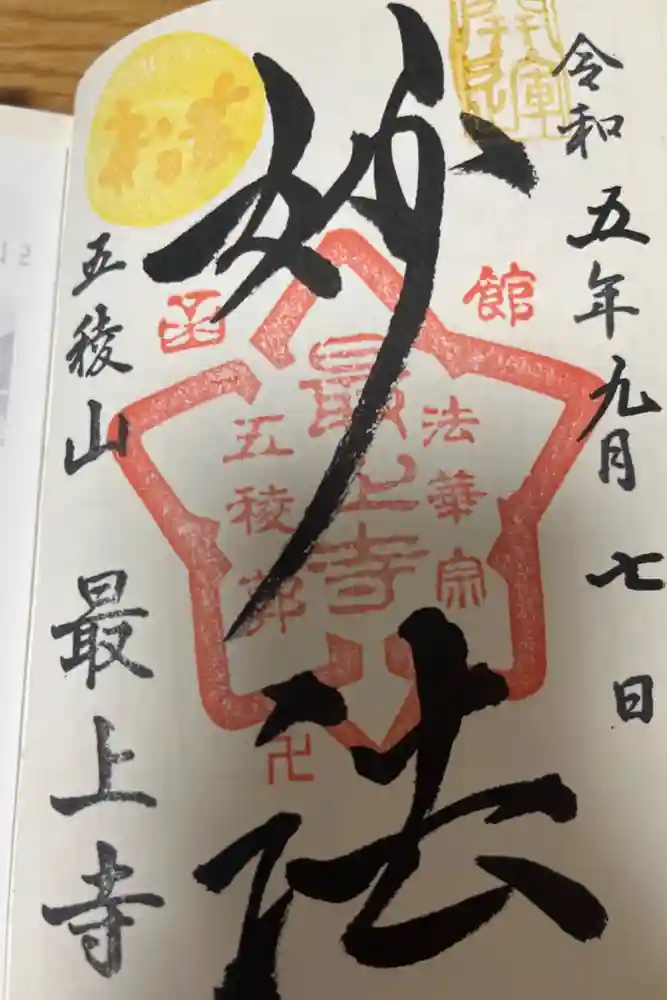 令和五年九月七日
開運
妙法
函館
法華宗
最上寺
五稜郭
卍
五稜山 最上寺